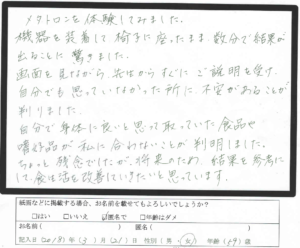 メタトロンを体験してみました。
機器を装着して椅子に座ったまま数分で結果が
出ることに驚きました。
画面を見ながら、先生からすぐにご説明を受け、
自分でも思っていなかった所に、不安があることが
判りました。
自分で身体に良いと思って取っていた食品や
嗜好品が私に合わないことが判明しました。
ちょっと残念でしたが、将来のため、結果を参考に
して食生活を改善していきたいと思っています。
紙面などに掲載する場合、お名前を載せてもよろしいでしょうか?
□はい □いいえ ☑匿名で □年齢はダメ
お名前( ) ご住所(
記入日(2018)年(3)月(21)日 性別(男・女) 年齢(59)歳